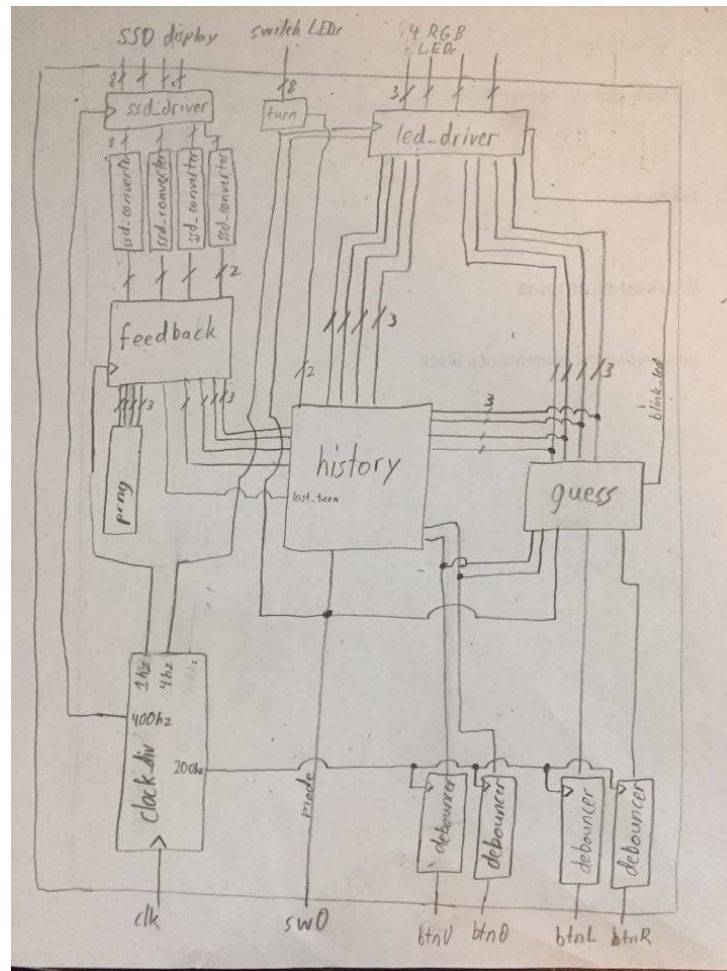 SSD display
switch LEDs
4 RGB
LEDs
8
8
3
ssd_driver
turn
led_driver
8
ssd_converter
ssd_converter
ssd_converter
ssd_converter
2
feedback
3
2
3
3
blink_led
3
3
prng
history
lost_turn
guess
1hz
4hz
400hz
200hz
clock_div
mode
debouncer
debouncer
debouncer
debouncer
clk
sw0
btnU
btnD
btnL
btnR